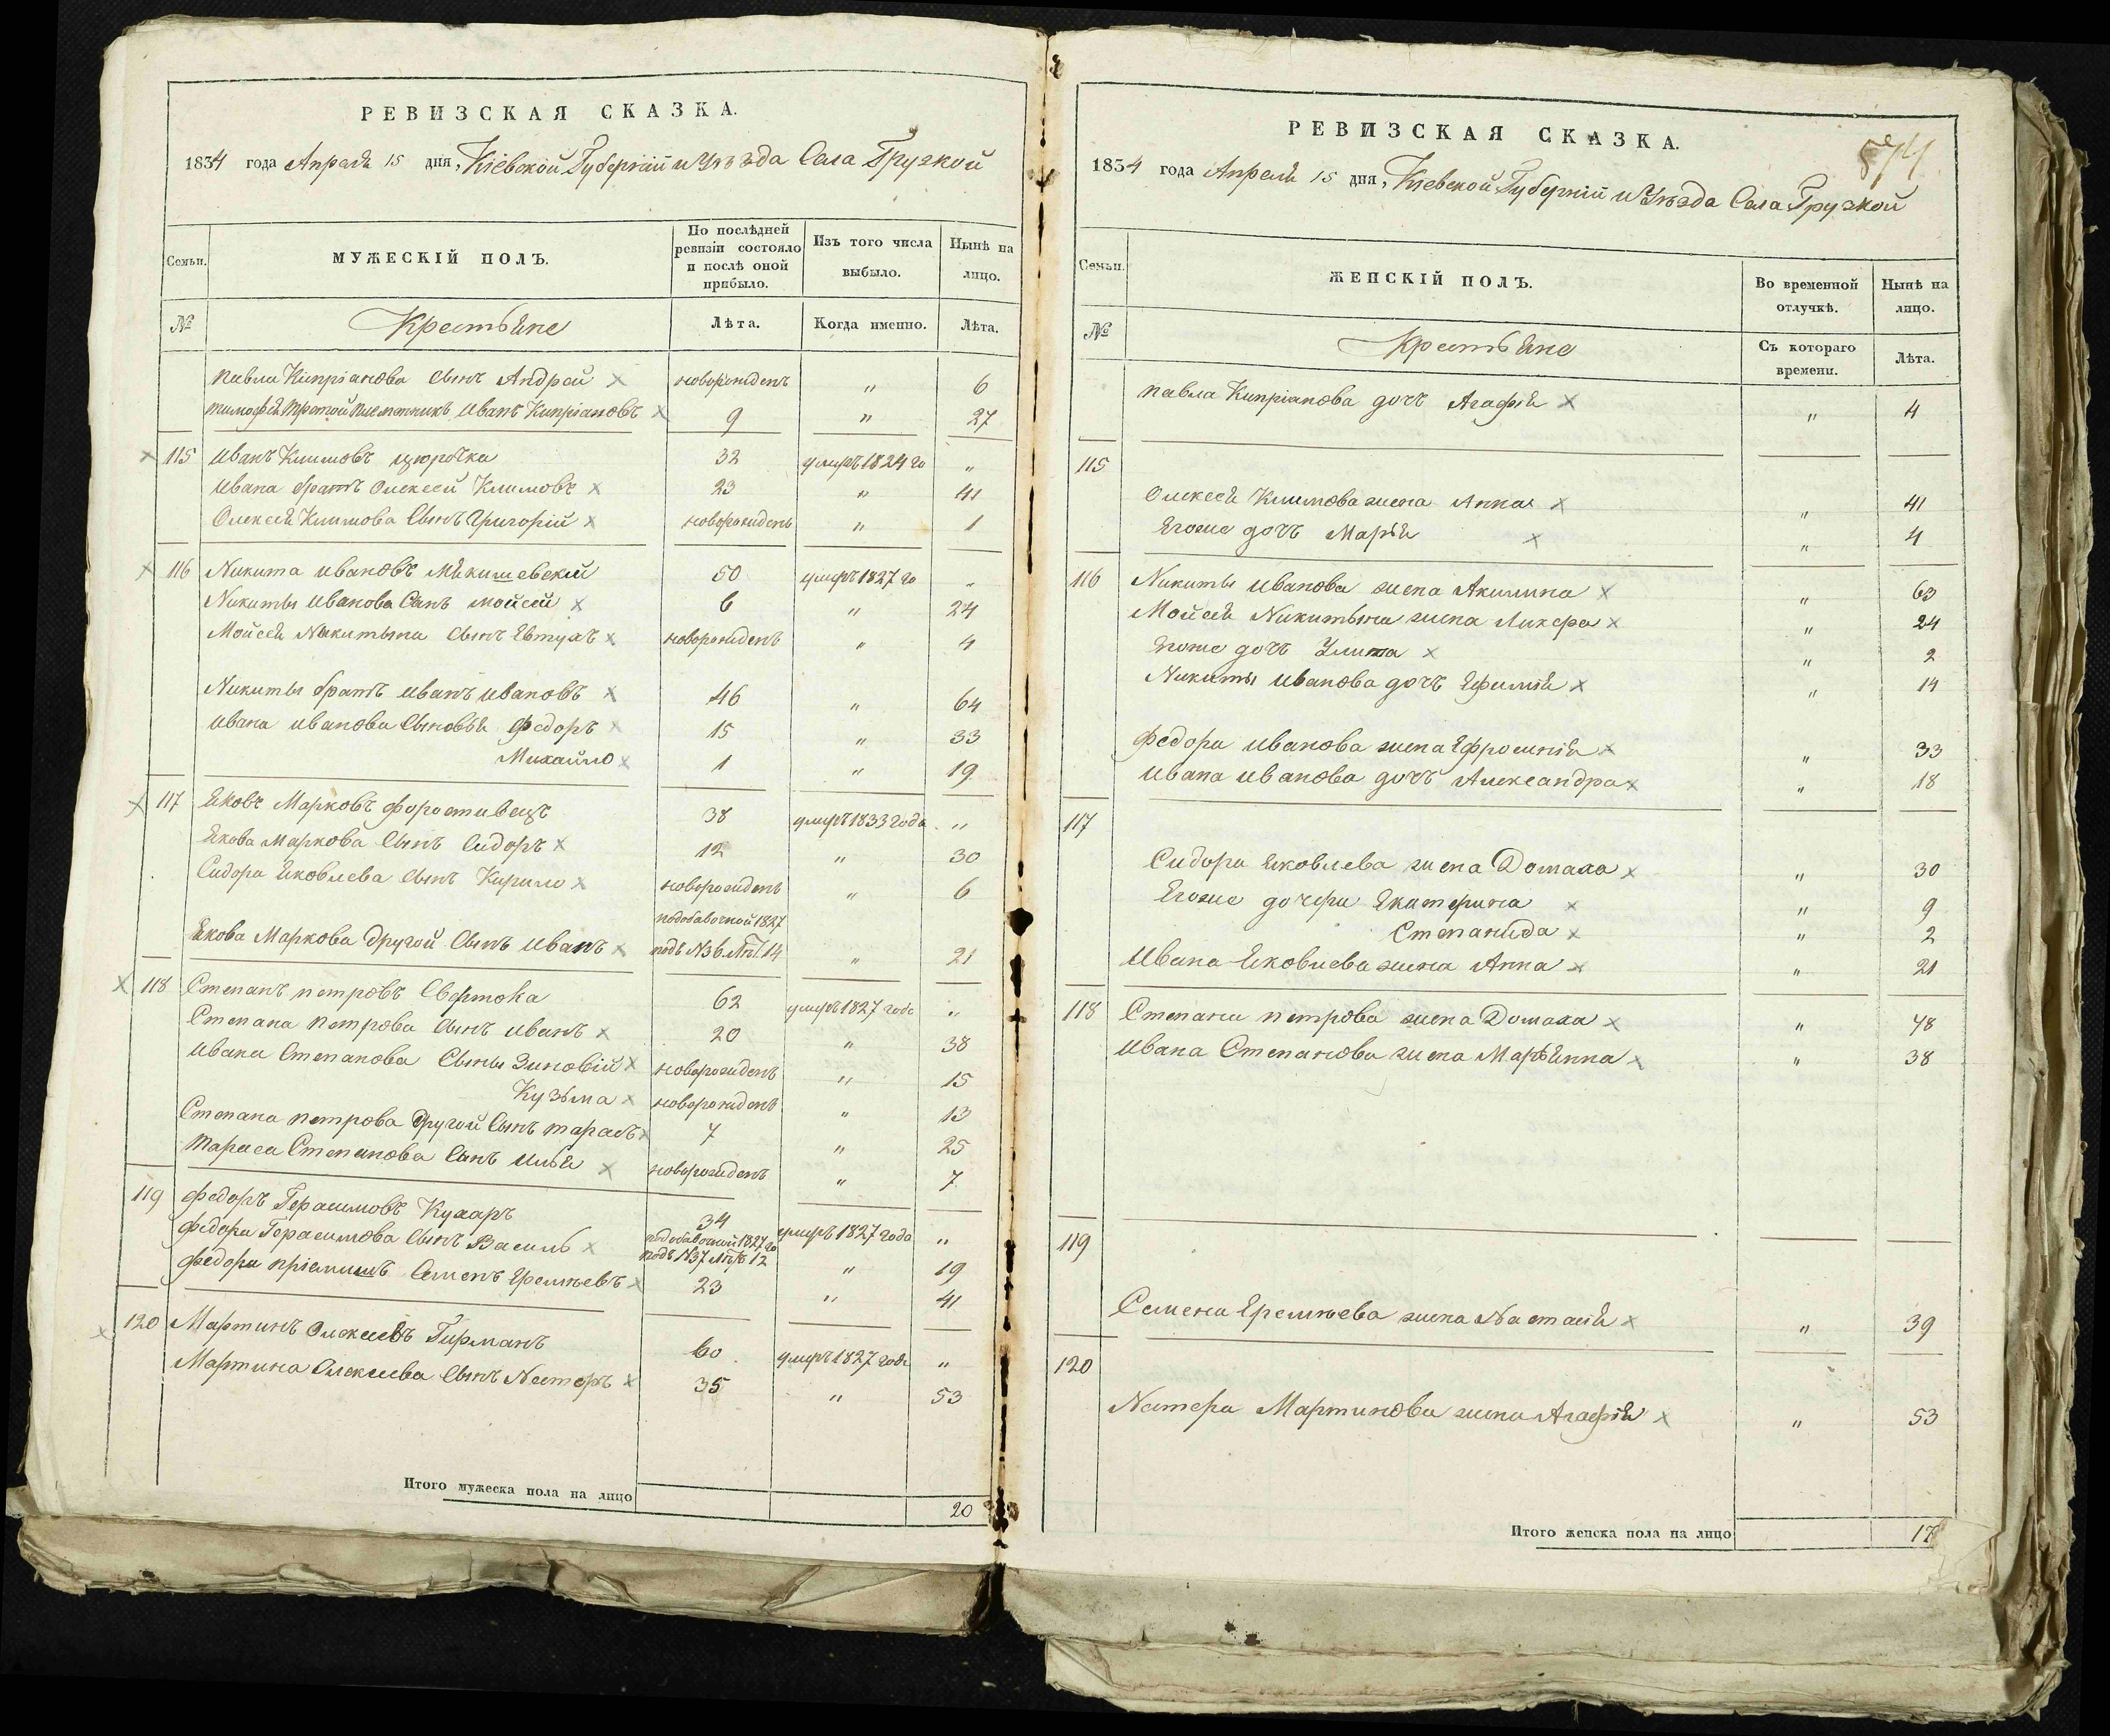 РЕВИЗСКАЯ СКАЗКА.
1834 года Апреля 15 дня, Кіевской Губерніи и Уѣзда Села Грузкой
Семьи. МУЖЕСКІЙ ПОЛЪ. По послѣдней ревизіи состояло и послѣ оной прибыло. Изъ того числа выбыло. Нынѣ на лицо.
№ Крестьяне Лѣта. Когда именно. Лѣта.
павла Кипріанова сынъ Андрей × новорожденъ " 6
тимофея третой племенникъ Иванъ Кипріановъ × 9 " 27
× 115 Иванъ Климовъ цюрочка 32 умеръ 1824 го "
Ивана братъ Олексей Климовъ × 23 " 41
Олексея Климова Сынъ Григорій × новорожденъ " 1
× 116 Никита Ивановъ Мякишевскій 50 умеръ 1827 го "
Никиты Иванова Сынъ мойсей × 6 " 24
Мойсея Никитына сынъ Евтухъ × новорожденъ " 4
Никиты братъ Иванъ Ивановъ × 46 " 64
Ивана Иванова Сыновья Федоръ × 15 " 33
Михайло × 1 " 19
× 117 Яковъ Марковъ Форостивецъ 38 умеръ 1833 года "
Якова Маркова Сынъ Сидоръ × 12 " 30
Сидора Яковлева Сынъ Кирило × новорожденъ " 6
подобавочной 1827
Якова Маркова другой Сынъ Иванъ × подъ N 36. Лѣт. 14 " 21
× 118 Степанъ петровъ Свертока 62 умеръ 1827 года "
Степана петрова Сынъ Иванъ × 20 " 38
Ивана Степанова Сыны Зиновій × новорожденъ " 15
Кузьма × новорожденъ " 13
Степана петрова другой Сынъ тарасъ × 7 " 25
тараса Степанова Сынъ Илья × новорожденъ " 7
119 Федоръ Герасимовъ Кухаръ 34 умеръ 1827 года "
Федора Герасимова Сынъ Василь × подобавочной 1827 го подъ N 37 Лѣтъ 12 " 19
Федора пріемишъ Семенъ Еремѣевъ × 23 " 41
× 120 Мартинъ Олексеевъ Гирманъ 60 умеръ 1827 года "
Мартина Олексеева Сынъ Нестеръ × 35 " 53
Итого мужеска пола на лицо 20
РЕВИЗСКАЯ СКАЗКА.
574
1834 года Апреля 15 дня, Кіевской Губерніи и Уѣзда Села Грузкой
Семьи. ЖЕНСКІЙ ПОЛЪ. Во временной отлучкѣ. Нынѣ на лицо.
№ Крестьяне Съ котораго времени. Лѣта.
павла Кипріанова дочъ Агафія × " 4
115
Олексея Климова жена Анна × " 41
Егоже дочъ Марья × " 4
116 Никиты Иванова жена Акилина × " 63
Мойсея Никитына жена Ликера × " 24
Егоже дочъ Улита × " 2
Никиты Иванова дочъ Ефимія × " 14
Федора Иванова жена Ефросинія × " 33
Ивана Иванова дочъ Александра × " 18
117
Сидора Яковлева жена Домаха × " 30
Егоже дочери Екатерина × " 9
Степанида × " 2
Ивана Яковлева жена Анна × " 21
118 Степана петрова жена Домаха × " 48
Ивана Степанова жена Марьянна × " 38
119
Семена Еремѣева жена Настасія × " 39
120
Нестера Мартинова жена Агафія × " 53
Итого женска пола на лицо 17